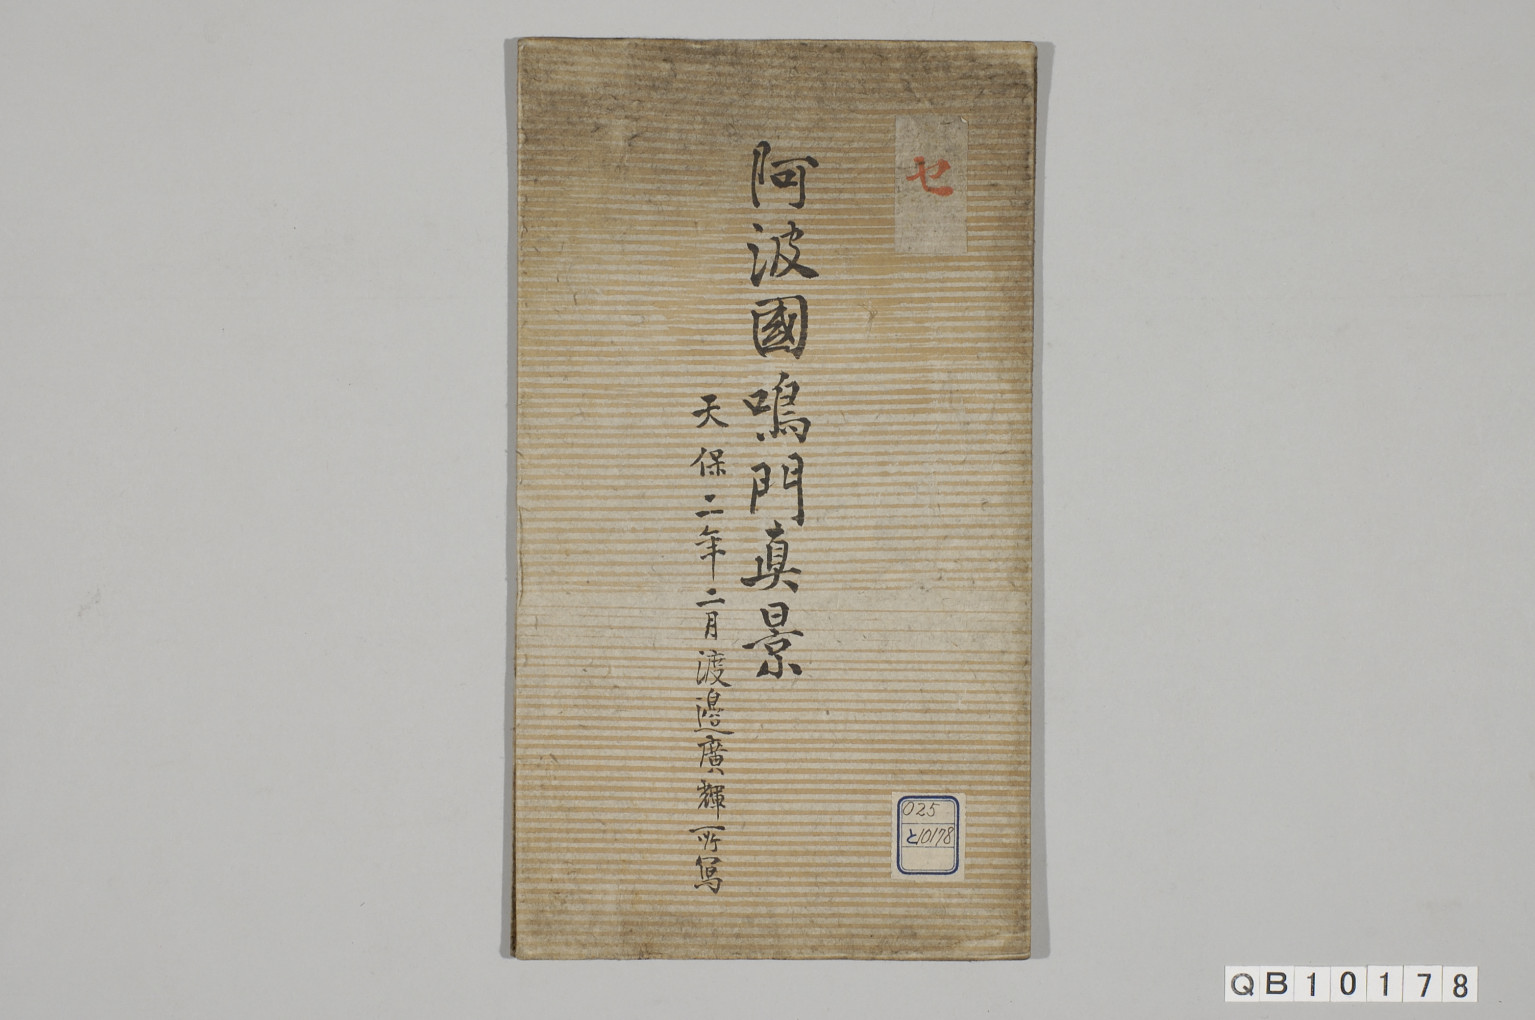 セ
阿波國鳴門真景
天保二年二月渡邉廣輝所寫
025
と10178
QB10178